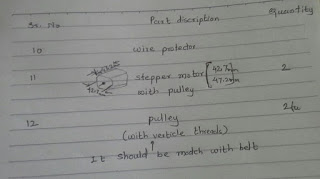 Sr. No Part discription Quantity
10 wire protector
11 stepper motor [42.7mm 2
47.2mm
with pulley
12 pulley
(with verticle threads)
It should be match with belt